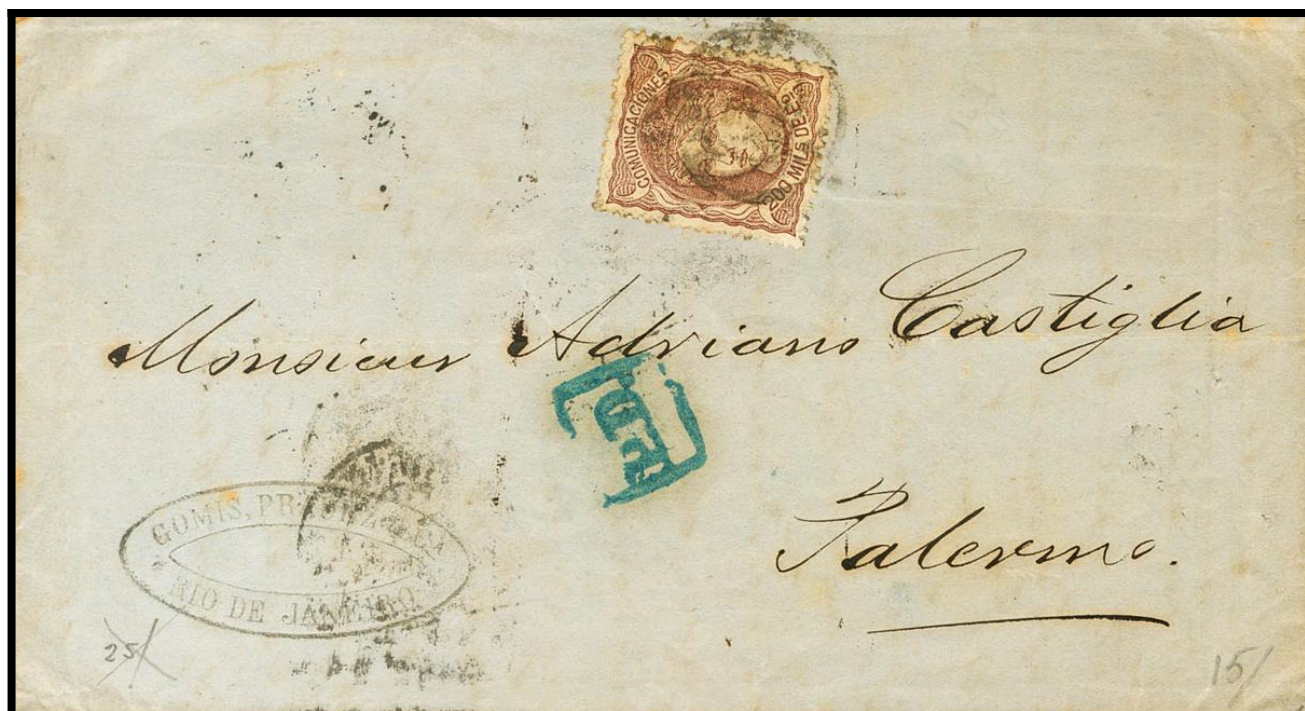 COMUNICACIONES
200 MILS DE Eº
Monsieur Adriano Castiglia
Palermo.
P.D.
GOMIS,
RIO DE JANEIRO
25/
15/